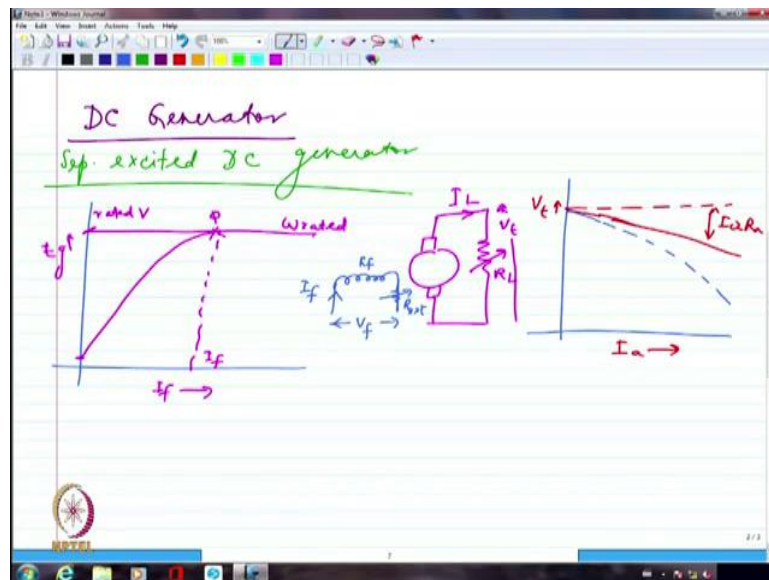 Note1 - Windows Journal
File Edit View Insert Actions Tools Help
100%
B I
DC Generator
Sep. excited DC generator
rated V
ωrated
Eg↑
If
If →
Rf
If
Vf
Rext
IL
Vt
RL
Vt↑
IaRa
Ia →
NPTEL
2/2
7